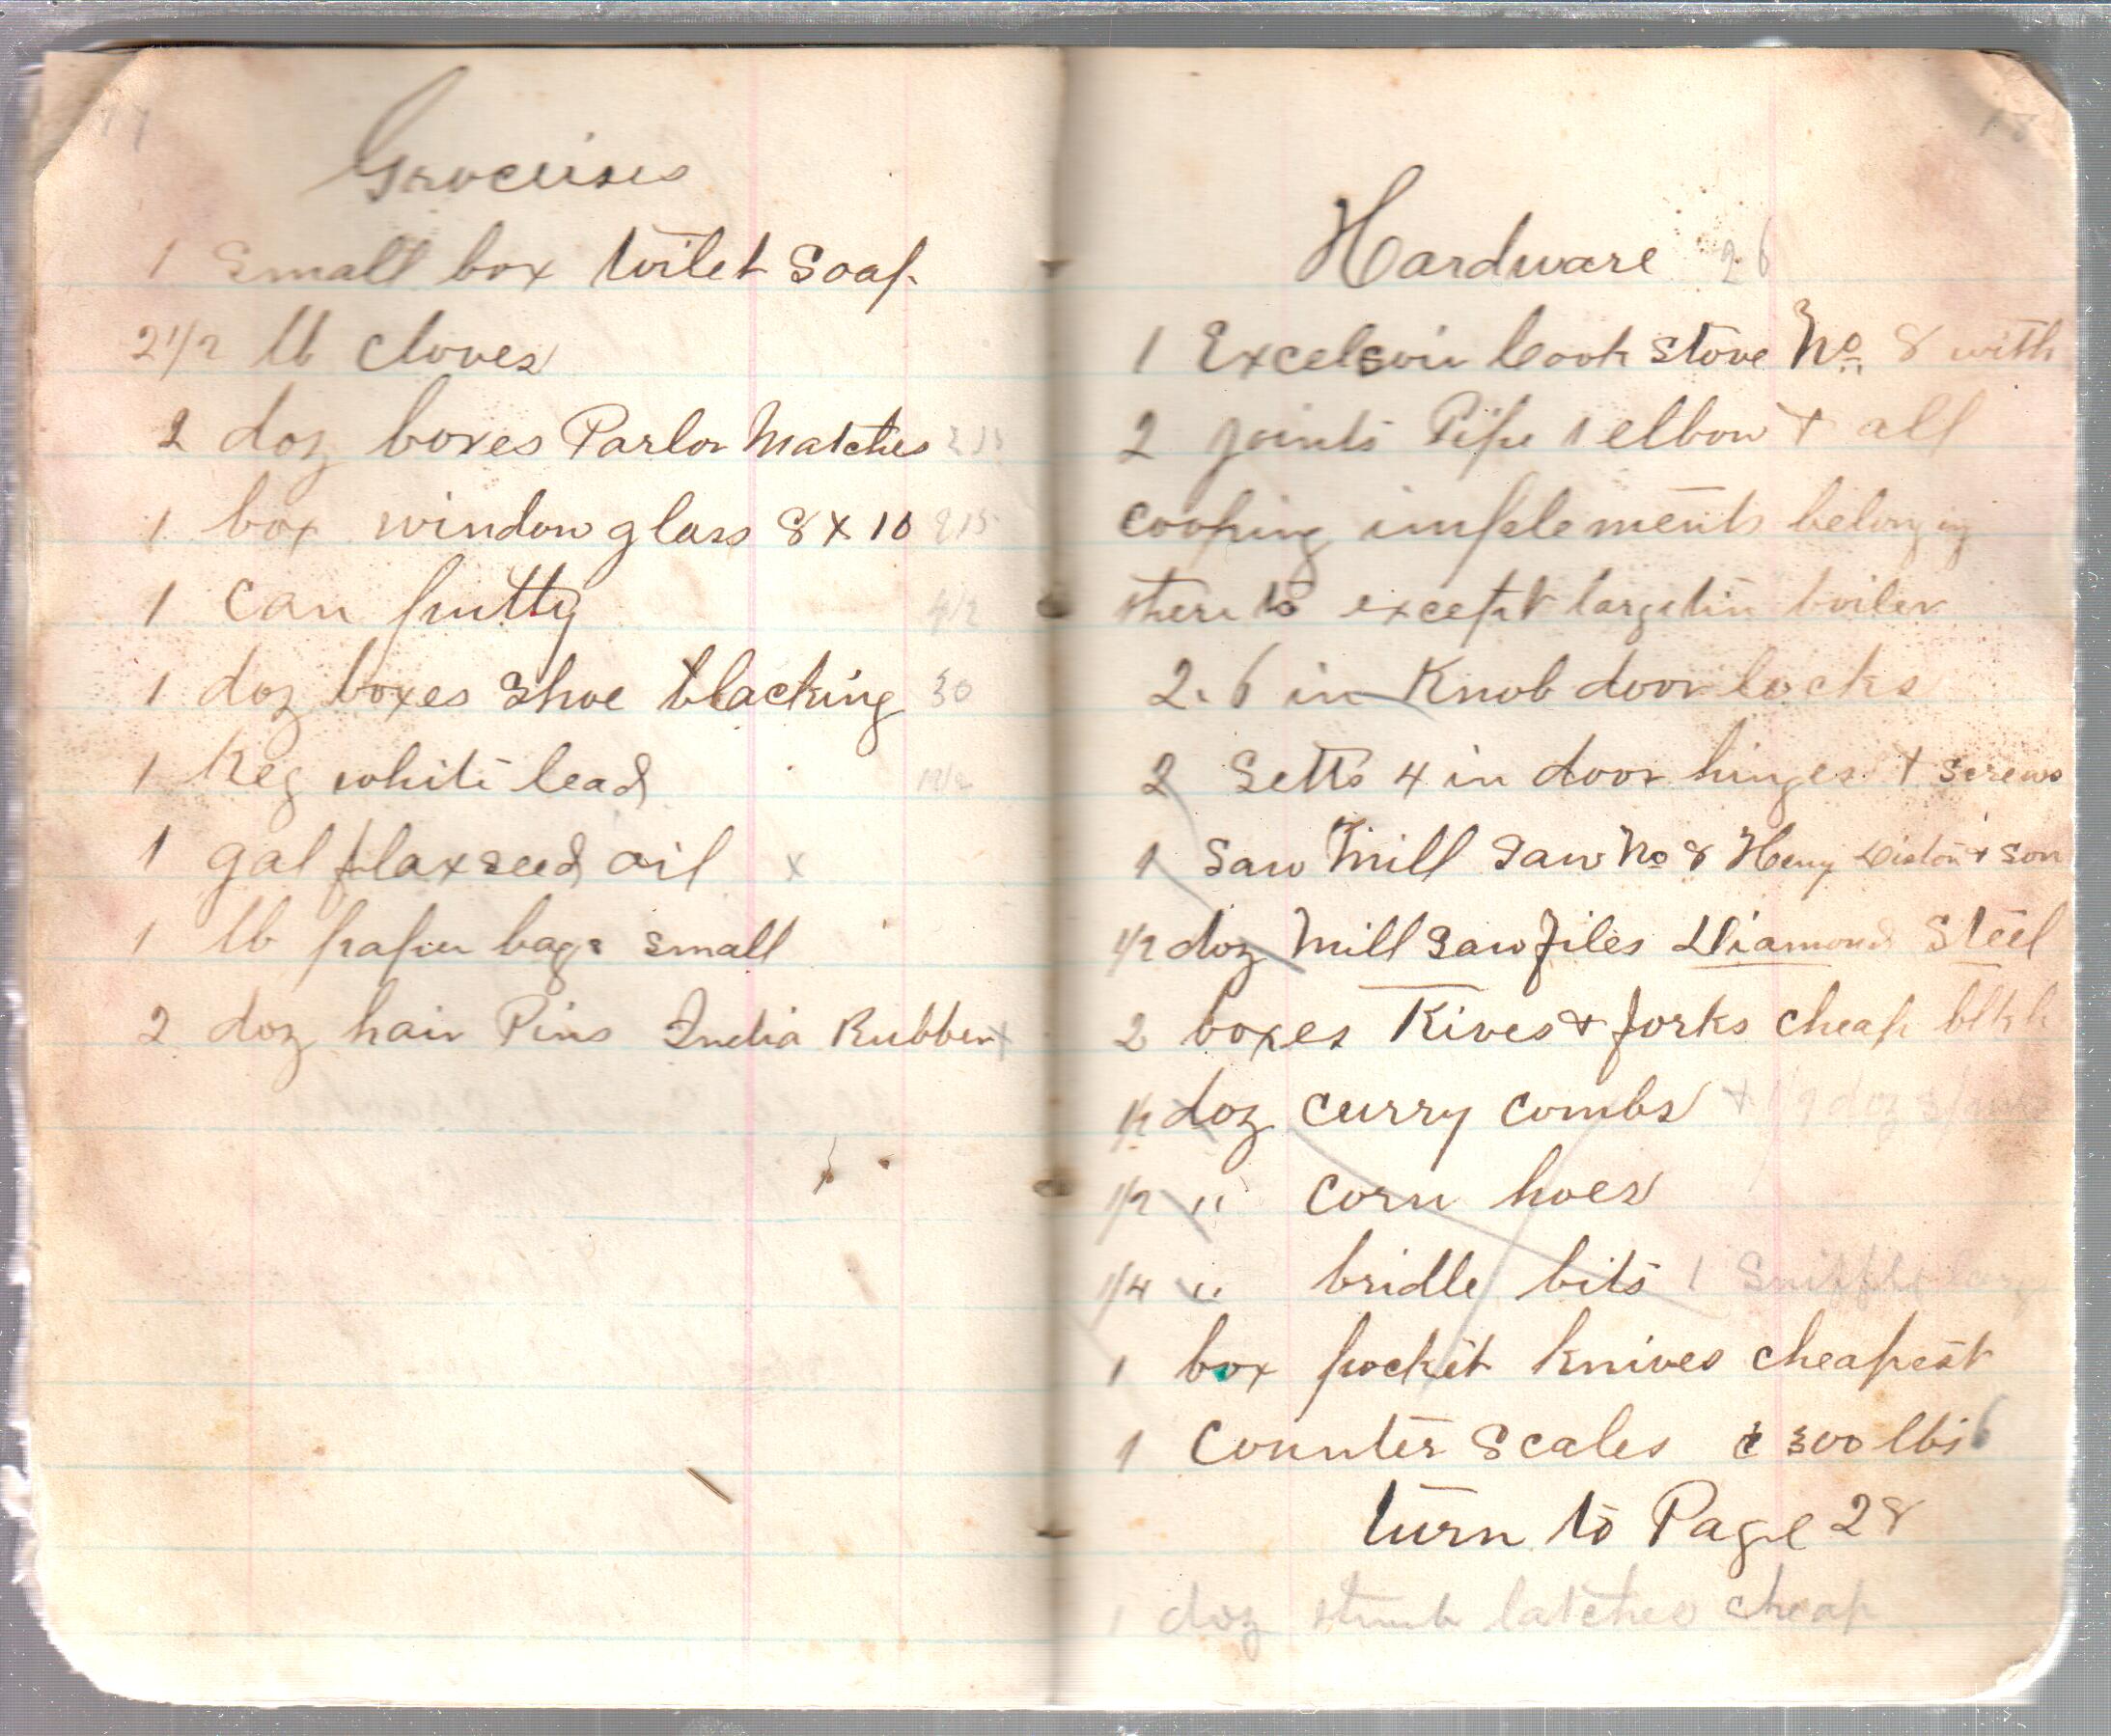 17
Groceries
1 Small box toilet Soap
2 1/2 lb cloves
2 doz boxes Parlor Matches
1 box window glass 8 x 10 215
1 can putty
1 doz boxes Shoe blacking 30
1 Keg white lead
1 gal flaxseed oil x
1 lb paper bags small
2 doz hair Pins India Rubber x
18
Hardware 26
1 Excelsoir Cook Stove No 8 with
2 joints Pipe 1 elbow + all
cooking implements belonging
there to except large tin boiler
2. 6 in Knob door locks
2 Setts 4 in door hinges + screws
1 Saw Mill Saw No 8 Henry Diston + Son
1/2 doz Mill Saw files Diamond Steel
2 boxes Kives + forks cheap
1/2 doz curry combs + 1/2 doz
1/2 " corn hoes
1/4 " bridle bits 1
1 box pocket knives cheapest
1 Counter Scales 300 lbs 6
turn to Page 28
1 doz latches cheap